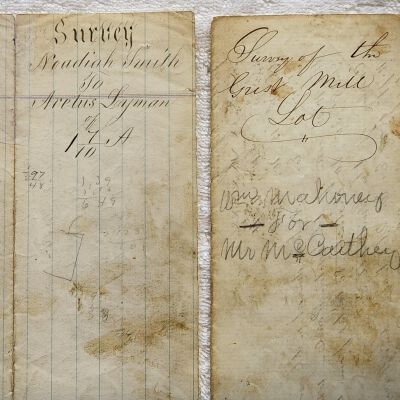 Survey
Noadiah Smith
to
Aretus Lyman
of
1 7/10 A
Survey of the
Grist Mill
Lot
Wm Mahoney
For
Mr McCarthey